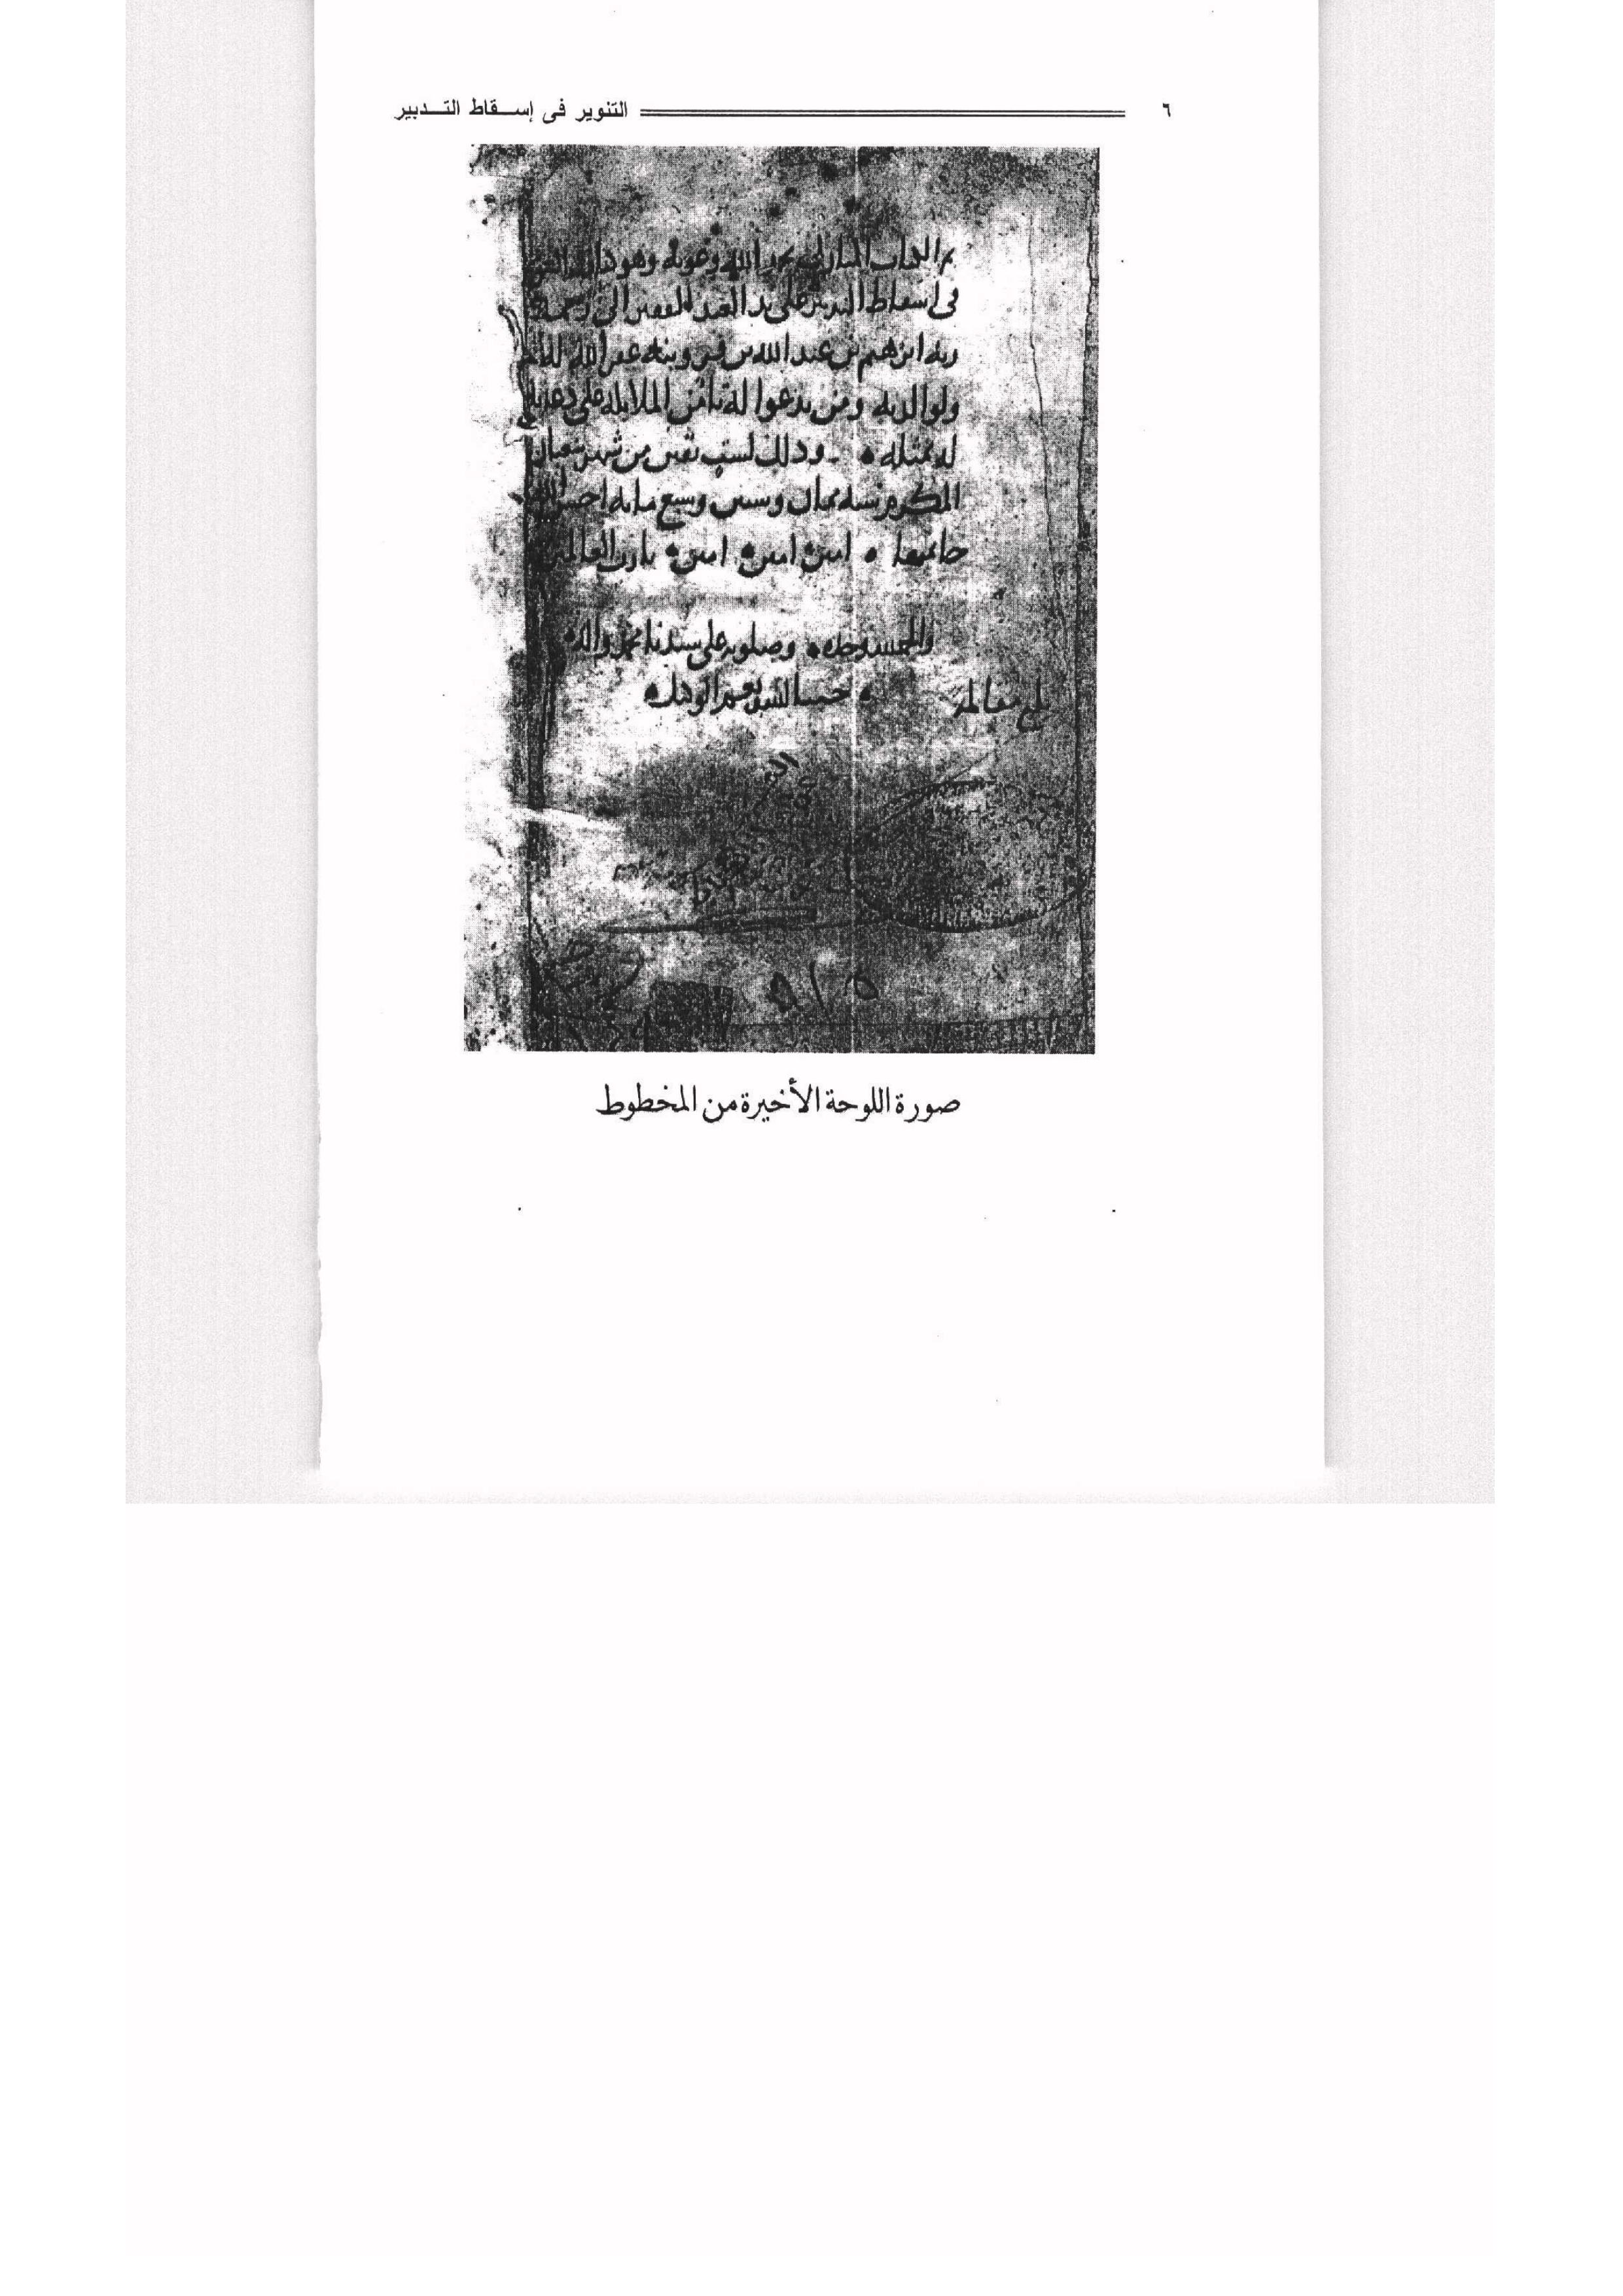 ٦ التنوير فى إسقاط التدبير
تم الكتاب المبارك بحمد الله وعونه وهو كتاب التنوير
فى اسقاط التدبير على يد العبد الفقير الى رحمة
ربه ابرهيم بن عبد الله بن غفر الله له
ولوالديه ومن يدعوا له تامن الملايكة على دعايه
له بمثله وذلك لست بقين من شهر شعبان
المكرم سنة ثمان وستين وسبع مايه احسن الله
خاتمتها امين امين امين يارب العالمين
والحمد لله وحده وصلوته على سيدنا محمد واله
حسبنا الله ونعم الوكيل
بلغ مقابلة
٥١٥
صورة اللوحة الأخيرة من المخطوط